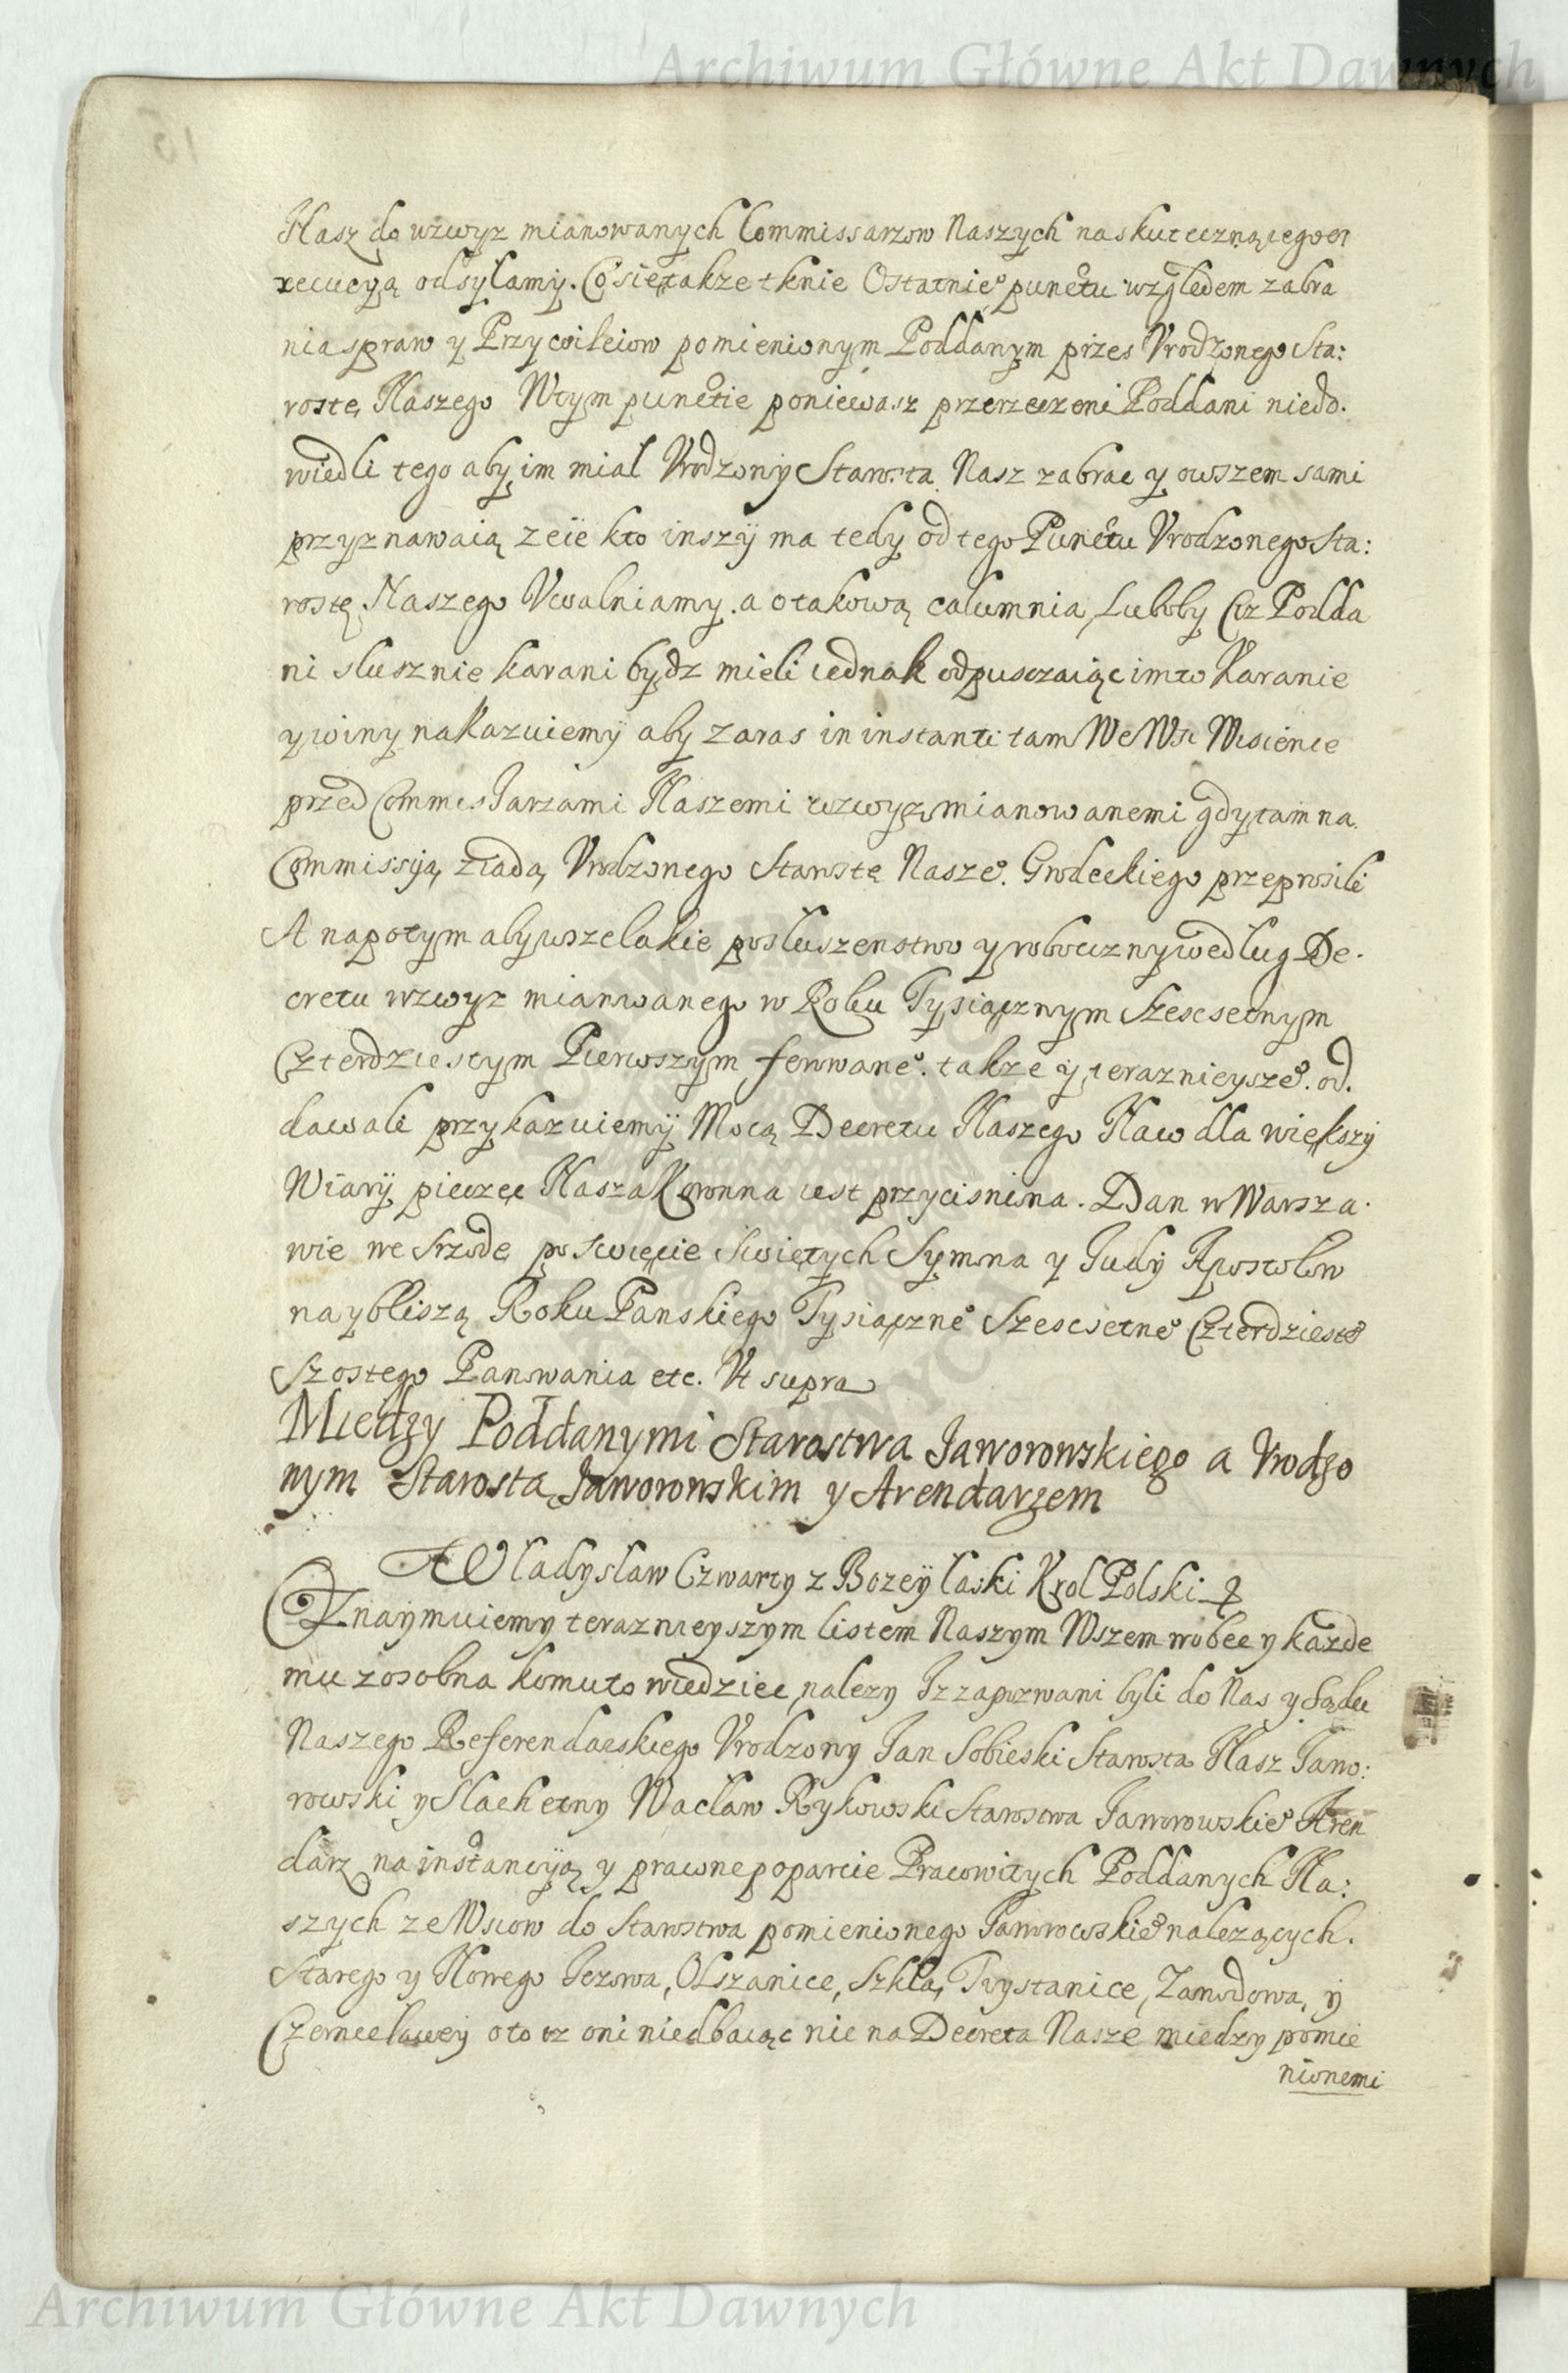 Archiwum Główne Akt Dawnych
Nasz do wzwyz mianowanych Commissarzow Naszych na skuteczną tego ex
xecucyą odsyłamy. Co się takze tknie Ostatnieo punctu względem zabra
nia spraw y Przywileiow pomienionym Poddanym przes Vrodzonego Sta:
rostę Naszego W tym punctie poniewasz przerzeczeni Poddani niedo.
wiedli tego aby im miał Vrodzony Starosta Nasz zabrac y owszem sami
przyznawaią ze ie kto inszy ma tedy od tego Punctu Vrodzonego Sta:
rostę Naszego Vwalniamy. a o takową calumnia, luboby Ciz Podda
ni slusznie karani bydz mieli iednak odpusczaiąc im to Karanie
y winy nakazuiemy aby zaras in instanti tam We Wsi Wisience
przed Commissarzami Naszemi wzwyz mianowanemi gdy tam na
Commissyą ziadą Vrodzonego Starostę Naszeo. Grodeckiego przeprosili
A napotym aby wszelakie posłuszenstwo y robocizny według De.
cretu wzwyz mianowanego w Roku Tysiącznym Szescsetnym
Czterdziestym Pierwszym ferowaneo. takze y teraznieyszeo. od.
dawali przykazuiemy Mocą Decretu Naszego Na co dla większy
Wiary pieczęc Nasza Koronna iest przycisniona. Dan w Warsza.
wie we Srzodę po Swięcie Swiętych Symona y Judy Apostolow
nayblisszą Roku Panskiego Tysiączneo Szescsetneo Czterdziesteo
Szostego Panowania etc. Vt supra
Miedzy Poddanymi Starostwa Jaworowskiego a Vrodzo
nym Starostą Jaworowskim y Arendarzem
Wladyslaw Czwarty z Bozey laski Krol Polski
Oznaymuiemy teraznieyszym listem Naszym Wszem wobec y kazde
mu zosobna komu to wiedziec nalezy Iz zapozwani byli do Nas y Sądu
Naszego Referendarskiego Vrodzony Jan Sobieski Starosta Nasz Jawo:
rowski y Slachetny Wacław Rykowski Starostwa Jaworowskieo Aren
darz na instancyą y prawne poparcie Pracowitych Poddanych Na:
szych ze Wsiow do Starostwa pomienionego Jaworowskieo nalezących.
Starego y Nowego Jezowa, Olszanice, Szkla, Trystanice, Zawodowa, y
Czerncelawey o to iz oni niedbaiąc nic na Decreta Nasze miedzy pomie
nionemi
Archiwum Główne Akt Dawnych